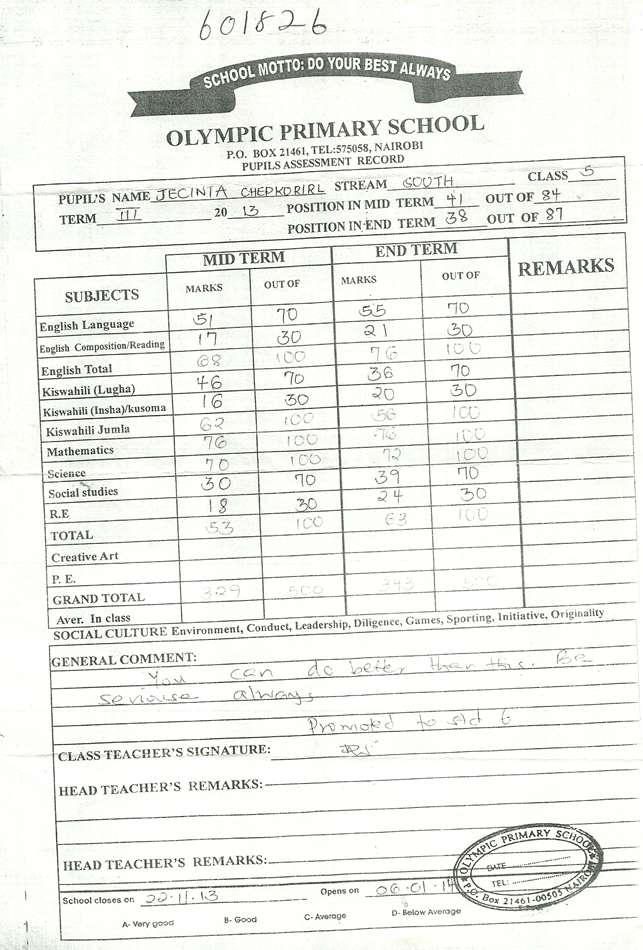 601826
SCHOOL MOTTO: DO YOUR BEST ALWAYS
OLYMPIC PRIMARY SCHOOL
P.O. BOX 21461, TEL:575058, NAIROBI
PUPILS ASSESSMENT RECORD
PUPIL'S NAME JECINTA CHEPKORIRL STREAM SOUTH CLASS 5
TERM III 20 13 POSITION IN MID TERM 41 OUT OF 84
POSITION IN END TERM 38 OUT OF 87
MID TERM END TERM
SUBJECTS MARKS OUT OF MARKS OUT OF REMARKS
English Language 51 70 55 70
English Composition/Reading 17 30 21 30
English Total 68 100 76 100
Kiswahili (Lugha) 46 70 36 70
Kiswahili (Insha)/kusoma 16 30 20 30
Kiswahili Jumla 62 100 56 100
Mathematics 76 100 76 100
Science 70 100 72 100
Social studies 30 70 39 70
R.E 18 30 24 30
TOTAL 53 100 63 100
Creative Art
P. E.
GRAND TOTAL 329 500 343 500
Aver. In class
SOCIAL CULTURE Environment, Conduct, Leadership, Diligence, Games, Sporting, Initiative, Originality
GENERAL COMMENT:
You can do better than this. Be
seriouse always
Promoted to std 6
CLASS TEACHER'S SIGNATURE:
HEAD TEACHER'S REMARKS:
HEAD TEACHER'S REMARKS:
School closes on 22.11.13 Opens on 06.01.14
A- Very good B- Good C- Average D- Below Average
OLYMPIC PRIMARY SCHOOL
DATE
TEL:
P.O. Box 21461-00505 NAIROBI